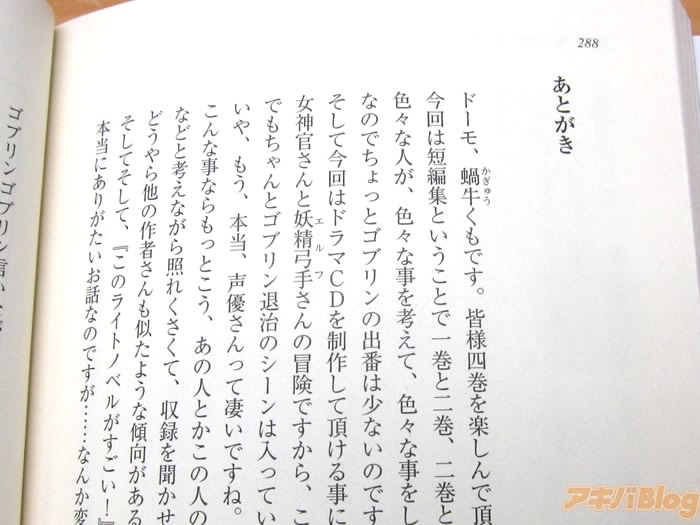 288
あとがき
ドーモ、蝸牛くもです。皆様四巻を楽しんで頂
かぎゅう
今回は短編集ということで一巻と二巻、二巻と
色々な人が、色々な事を考えて、色々な事をし
なのでちょっとゴブリンの出番は少ないのです
そして今回はドラマCDを制作して頂ける事に
女神官さんと妖精弓手さんの冒険ですから、こ
エルフ
でもちゃんとゴブリン退治のシーンは入ってい
いや、もう、本当、声優さんって凄いですね。
こんな事ならもっとこう、あの人とかこの人の
などと考えながら照れくさくて、収録を聞かせ
どうやら他の作者さんも似たような傾向がある
そしてそして、『このライトノベルがすごい!』
本当にありがたいお話なのですが……なんか変
ゴブリンゴブリン言い
アキバBlog